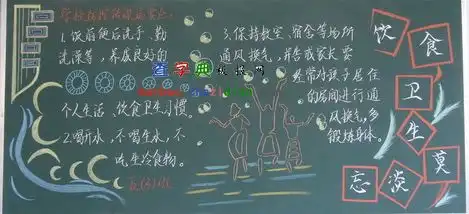 学校预防
1.饭前便后洗手、勤
洗澡等,养成良好的
个人生活、饮食卫生习惯。
2.喝开水,不喝生水,不
吃生冷食物。
3.保持教室、宿舍等场所
通风换气,并告诫家长要
经常对孩子居住
的房间进行通
风换气,多
锻炼身体。
饮
食
卫
生
莫
淡
忘